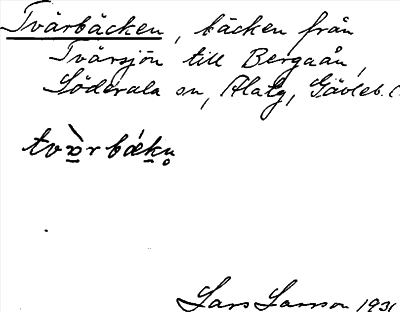 Tvärbäcken, bäcken från
Tvärsjön till Bergaån,
Söderala sn, Ala tg, Gävleb. l.
Lars Larsson 1931